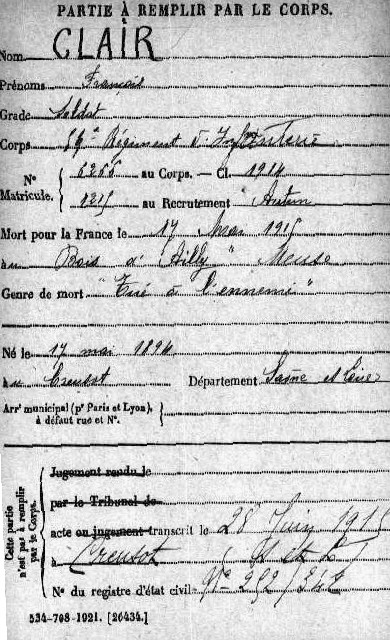 PARTIE À REMPLIR PAR LE CORPS.
Nom CLAIR
Prénoms François
Grade Soldat
Corps Régiment d'Infanterie
N° Matricule. { au Corps. — Cl. 1914
1215 au Recrutement Autun
Mort pour la France le 17 Mai 1915
au Bois d'Ailly " Meuse
Genre de mort "Tué à l'ennemi"
Né le 17 mai 1894
au Creusot Département Saône et Loire
Arrᵗ municipal (pʳ Paris et Lyon),
à défaut rue et N°.
Cette partie n'est pas à remplir par le Corps.
Jugement rendu le
par le Tribunal de
acte ou jugement transcrit le 28 Juin 1915
à Creusot (S et L)
N° du registre d'état civil N° 292/342
534-708-1921. [26434.]